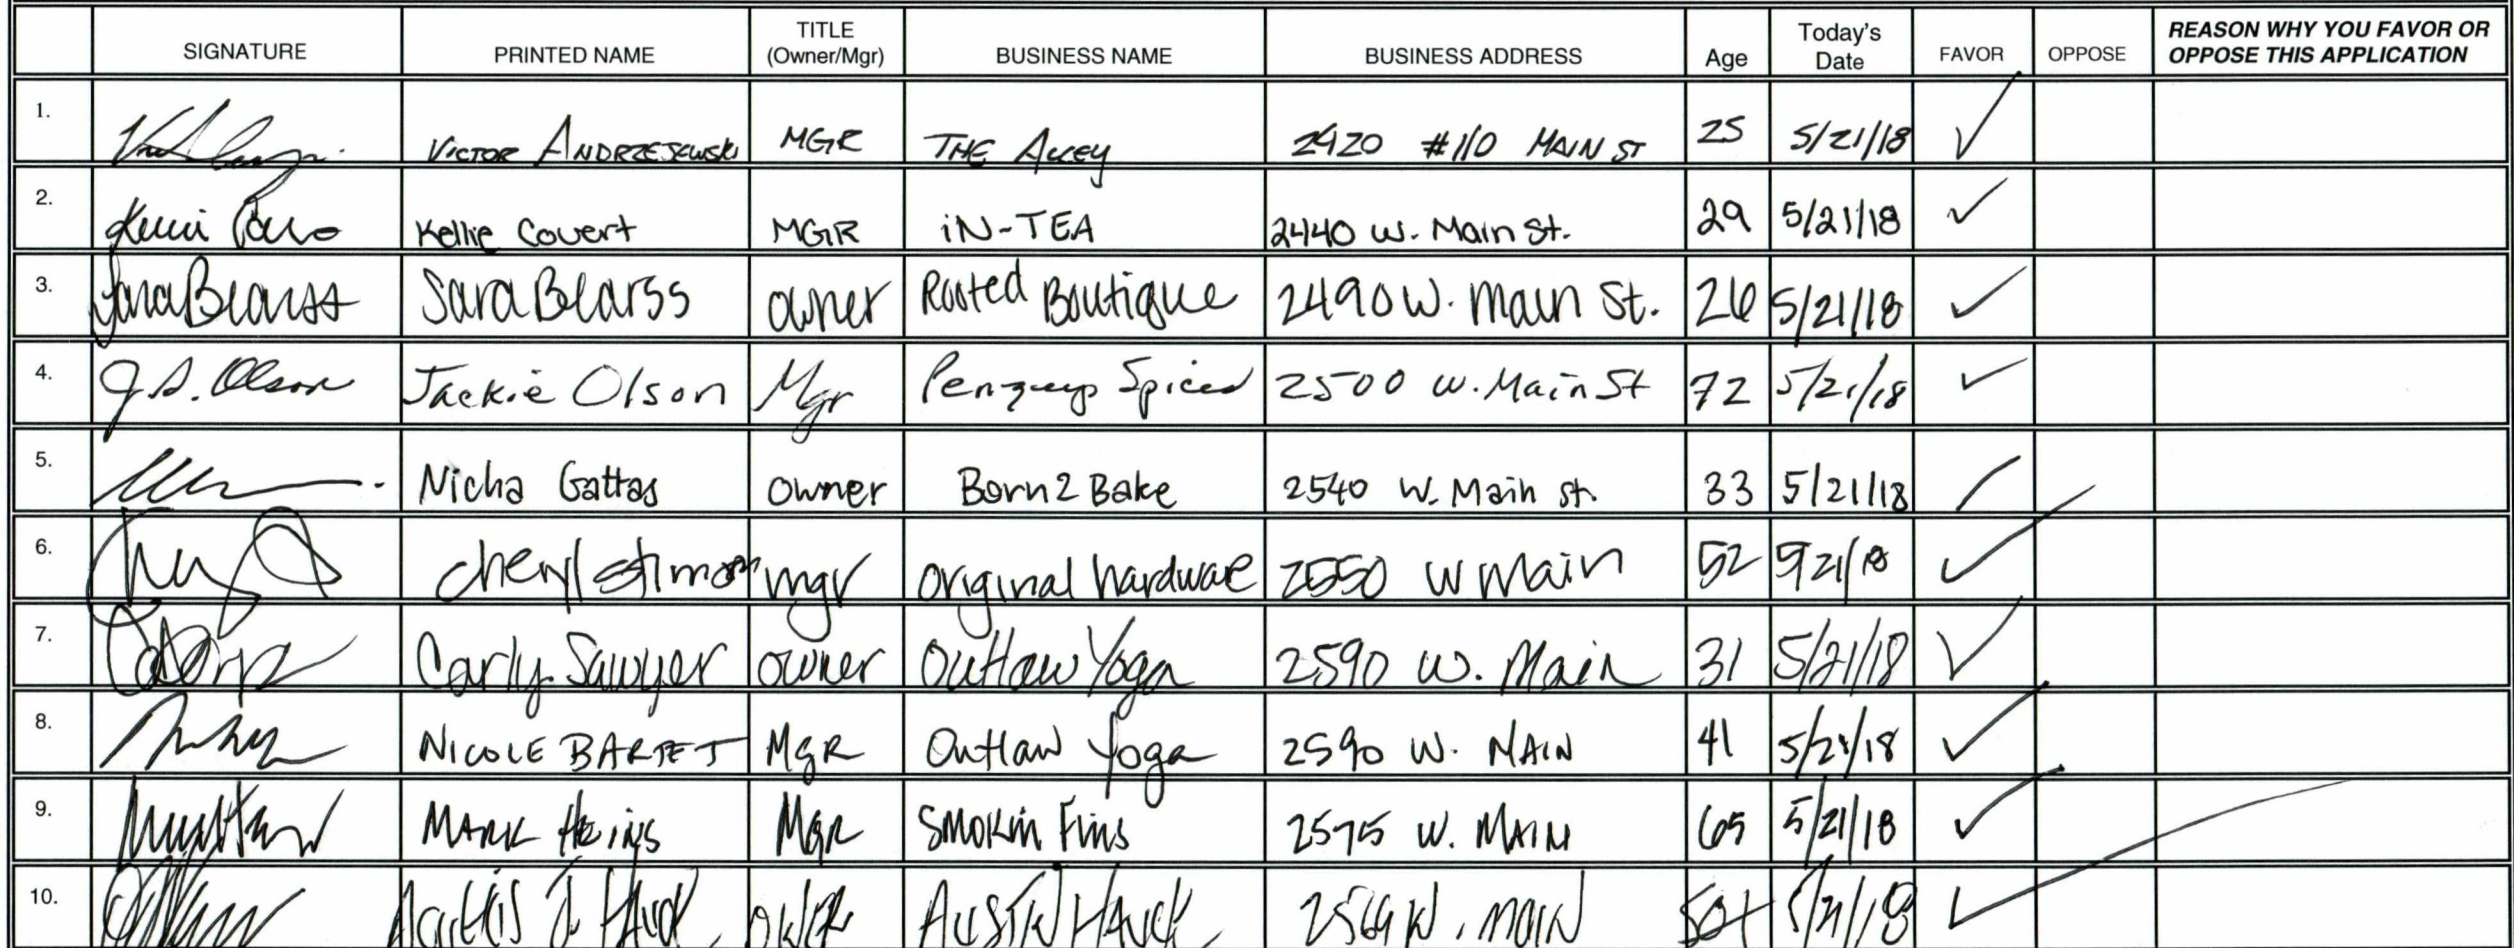 SIGNATURE PRINTED NAME TITLE (Owner/Mgr) BUSINESS NAME BUSINESS ADDRESS Age Today's Date FAVOR OPPOSE REASON WHY YOU FAVOR OR OPPOSE THIS APPLICATION
1. VICTOR ANDRZEJEWSKI MGR THE ALLEY 2420 #110 MAIN ST 25 5/21/18 ✓
2. Kellie Covert MGR iN-TEA 2440 W. Main St. 29 5/21/18 ✓
3. Sara Bearss Sara Bearss owner Rooted Boutique 2490 W. Main St. 26 5/21/18 ✓
4. J.S. Olson Jackie Olson Mgr Penzeys Spices 2500 W. Main St 72 5/21/18 ✓
5. Nicha Gattas owner Born 2 Bake 2540 W. Main St. 33 5/21/18 ✓
6. Cheryl mgr original hardware 2550 W Main 52 5/21/18 ✓
7. Carly Sawyer owner Outlaw Yoga 2590 W. Main 31 5/21/18 ✓
8. NICOLE MgR Outlaw Yoga 2590 W. MAIN 41 5/21/18 ✓
9. MARK Heins MgR Smokin Fins 2575 W. MAIN 65 5/21/18 ✓
10. J. Hauck AUSTIN HAUCK 2569 W. MAIN 50+ 5/21/18 ✓